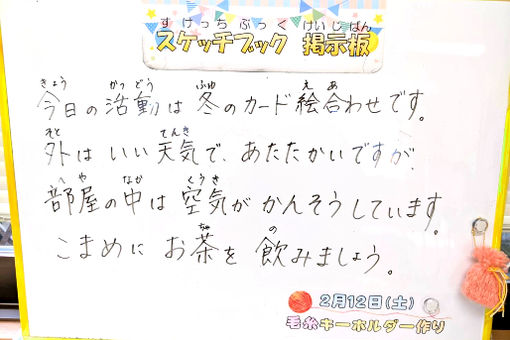 すけっちぶっく けいじばん
スケッチブック 掲示板
きょう かつどう ふゆ え あ
今日の活動は冬のカード絵合わせです。
そと てんき
外はいい天気で、あたたかいですが、
へや なか くうき
部屋の中は空気がかんそうしています。
ちゃ の
こまめにお茶を飲みましょう。
2月12日(土)
毛糸キーホルダー作り